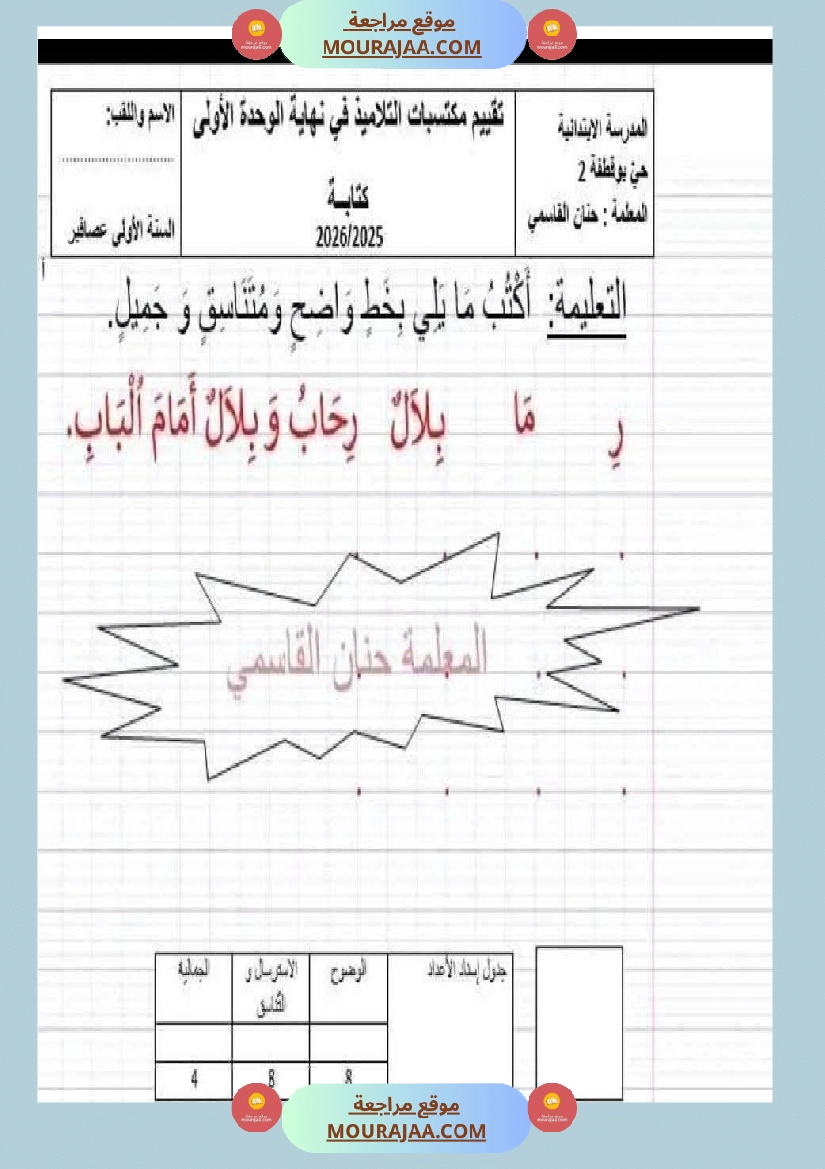 موقع مراجعة
MOURAJAA.COM
المدرسة الابتدائية
حيّ بوقطفة 2
المعلمة : حنان القاسمي
تقييم مكتسبات التلاميذ في نهاية الوحدة الأولى
كتابــة
2026/2025
الاسم واللقب:
..............................
السنة الأولى عصافير
أ
التعليمة: أَكْتُبُ مَا يَلِي بِخَطٍ وَاضِحٍ وَمُتَنَاسِقٍ وَ جَمِيلٍ.
رِ مَا بِلاَلٌ رِحَابُ وَ بِلاَلٌ أَمَامَ اُلْبَابِ.
المعلمة حنان القاسمي
جدول إسناد الأعداد الوضوح الاسترسال و التناسق الجمالية
8 8 4
موقع مراجعة
MOURAJAA.COM